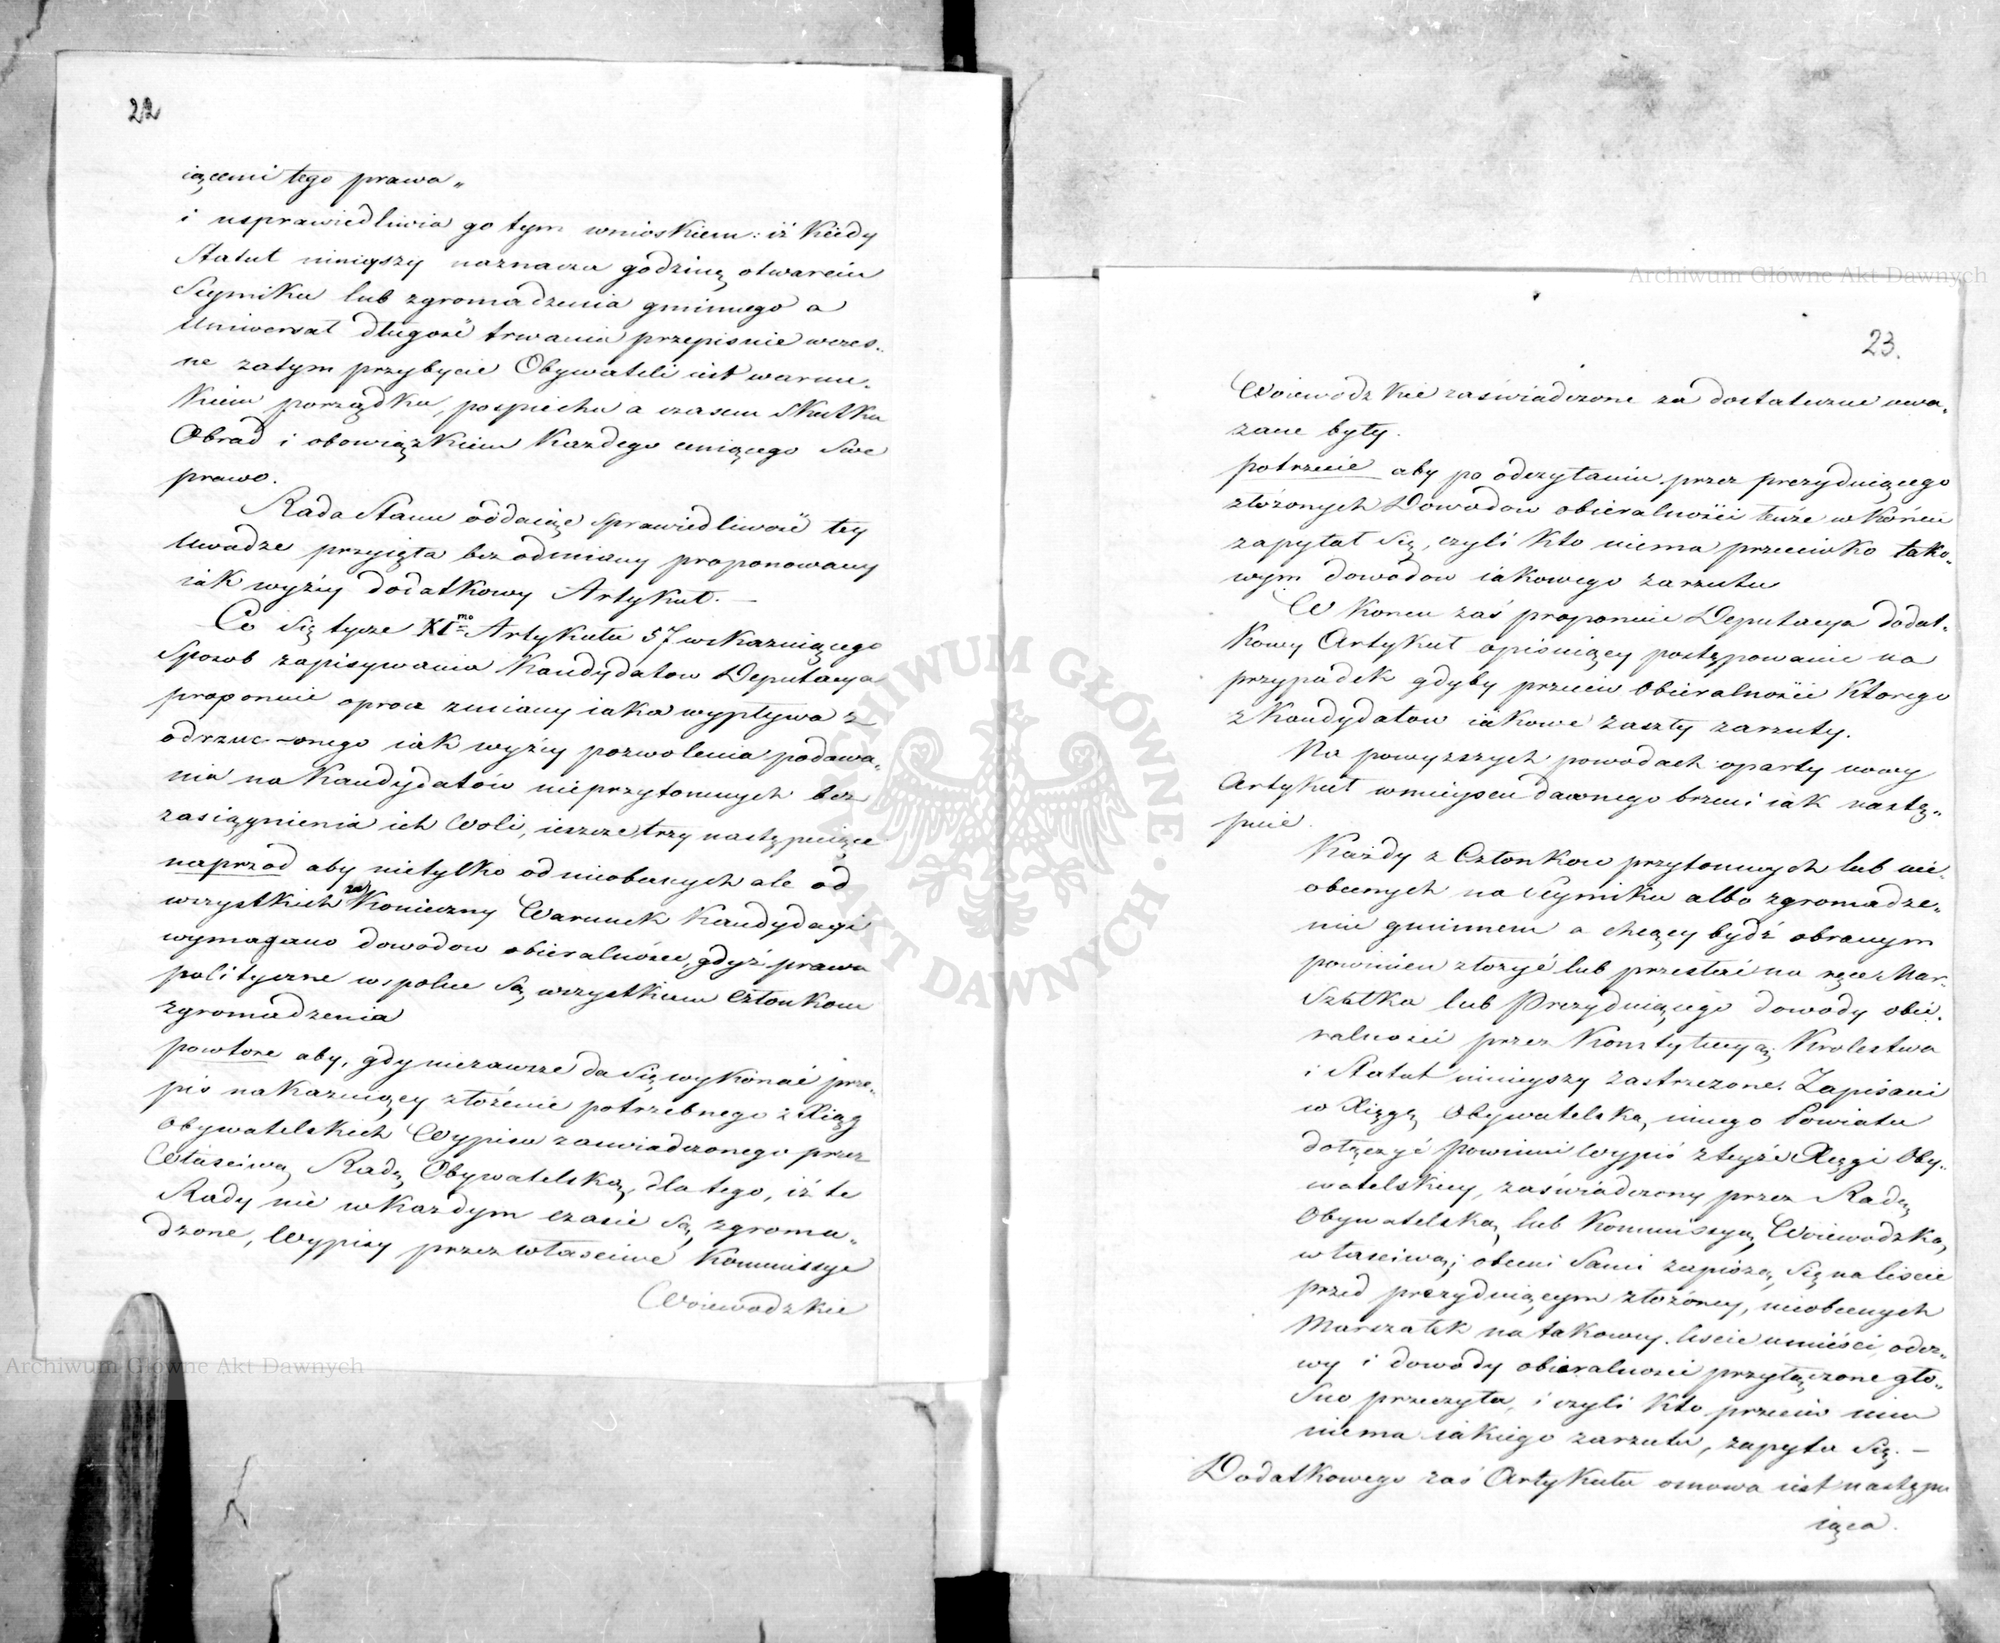 22
iącemi tego prawa„
i usprawiedliwia go tym wnioskiem: iż kiedy
Statut ninieyszy naznacza godzinę otwarciu
Seymiku lub zgromadzenia gminnego a
Uniwersał długość trwania przepisuie wczes-
ne zatym przybycie Obywateli iest warun-
kiem porządku, pospiechu a czasem skutku
Obrad i obowiązkiem każdego ceniącego swe
prawo.
Rada Stanu oddaiąc sprawiedliwość tey
Uwadze przyięła bez odmiany proponowany
iak wyżey dodatkowy Artykuł. —
Co się tycze XI mo Artykułu 57 wskazuiącego
Sposób zapisywania Kandydatow Deputacya
proponuie oprocz zmiany iaka wypływa z
odrzuc-onego iak wyżey pozwolenia podawa-
nia na Kandydatów nieprzytomnych bez
zasiągnienia ich Woli, ieszcze trzy następuiące
naprzod aby nietylko od nieobecnych ale od
wszystkich za Konieczny Warunek Kandydacyi
wymagano dowodow obieralności, gdyż prawa
polityczne wspolne są wszystkiem Członkom
zgromadzenia
powtore aby, gdy niezawsze da się wykonać prze-
pis nakazuiący złożenie potrzebnego z Xiąg
Obywatelskich Wypisu zaswiadczonego przez
Właściwą Radę Obywatelską, dla tego, iż te
Rady nie w każdym czasie są zgroma-
dzone, Wypisy przez właściwe Kommissye
Woiewodzkie
23.
Woiewodzkie zaświadczone za dostateczne uwa-
żane były.
potrzecie aby po odczytaniu przez prezyduiącego
złożonych Dowodow obieralności tenże w końcu
zapytał się, czyli kto niema przeciwko tako-
wym dowodow iakowego zarzutu
W końcu zaś proponuie Deputacya dodat-
kowy Artykuł opisuiący postępowanie na
przypadek gdyby przeciw obieralności którego
z Kandydatow iakowe zaszły zarzuty.
Na powyższych powodach oparty nowy
Artykuł w mieyscu dawnego brzmi iak nastę-
puie.
Każdy z Członkow przytomnych lub nie-
obecnych na Seymiku albo zgromadze-
niu gminnem a chcący bydź obranym
powinien złożyć lub przesłać na ręce Mar-
szałka lub Prezyduiącego dowody obie-
ralności przez Konstytucyą Krolestwa
i Statut ninieyszy zastrzeżone. Zapisani
w Xięgę Obywatelską innego Powiatu
dołączyć powinni Wypis z teyże Xięgi Oby-
watelskiey, zaświadczony przez Radę
Obywatelską lub Kommissyą Woiewodzką
właściwą; obecni sami zapiszą się na liście
przed prezyduiącym złożoney, nieobecnych
Marszałek na takowey liście umieści, odez-
wy i dowody obieralności przyłączone gło-
sno przeczyta, i czyli kto przeciw nim
niema iakiego zarzutu, zapyta się. —
Dodatkowego zaś Artykułu osnowa iest następu
iąca.
Archiwum Główne Akt Dawnych
Archiwum Główne Akt Dawnych
ARCHIWUM GŁÓWNE · AKT DAWNYCH ·